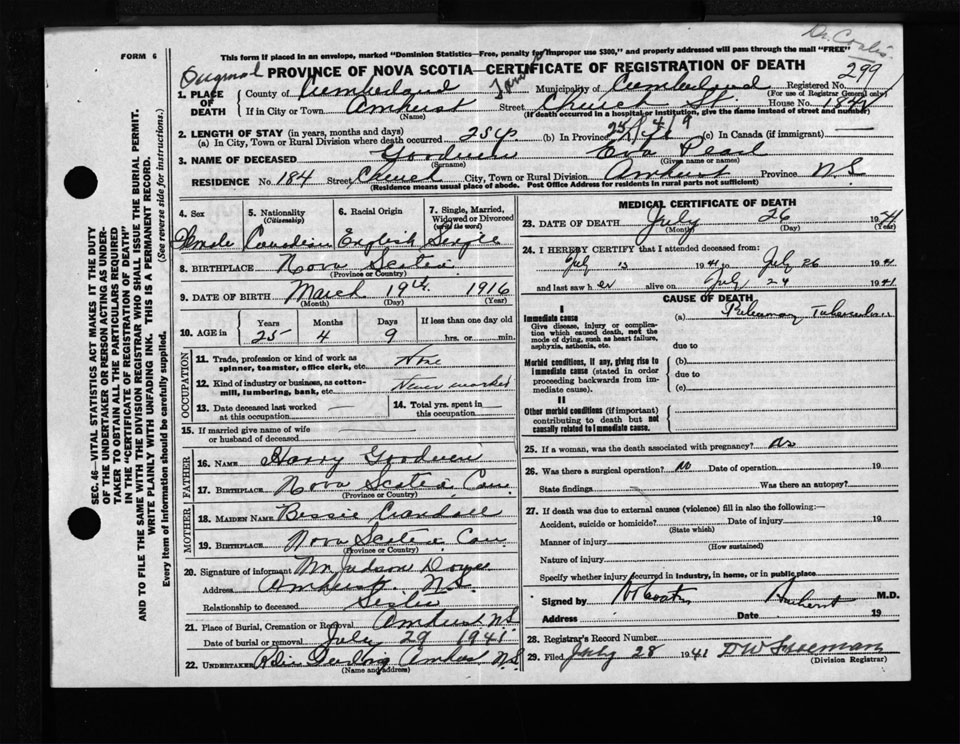 Dr. Coates
This form if placed in an envelope, marked "Dominion Statistics—Free, penalty for improper use $300," and properly addressed will pass through the mail "FREE"
FORM 6
Original
PROVINCE OF NOVA SCOTIA—CERTIFICATE OF REGISTRATION OF DEATH
299
1. PLACE OF DEATH
County of Cumberland Municipality of Cumberland Registered No.
(For use of Registrar General only)
If in City or Town Amherst Street Church St. House No. 184
(Name) (If death occurred in a hospital or institution, give the name instead of street and number)
2. LENGTH OF STAY (in years, months and days)
(a) In City, Town or Rural Division where death occurred 25 y. (b) In Province 25 4 9 (c) In Canada (if immigrant) —
3. NAME OF DECEASED Goodwin Eva Pearl
(Surname) (Given name or names)
RESIDENCE No. 184 Street Church City, Town or Rural Division Amherst Province N S
(Residence means usual place of abode. Post Office Address for residents in rural parts not sufficient)
4. Sex 5. Nationality (Citizenship) 6. Racial Origin 7. Single, Married, Widowed or Divorced (write the word)
Female Canadian English Single
8. BIRTHPLACE Nova Scotia
(Province or Country)
9. DATE OF BIRTH March 19th 1916
(Month) (Day) (Year)
10. AGE in Years Months Days If less than one day old
25 4 9 hrs. or min.
OCCUPATION
11. Trade, profession or kind of work as spinner, teamster, office clerk, etc. None
12. Kind of industry or business, as cotton-mill, lumbering, bank, etc. Never worked
13. Date deceased last worked at this occupation —
14. Total yrs. spent in this occupation —
15. If married give name of wife or husband of deceased —
FATHER
16. NAME Harry Goodwin
17. BIRTHPLACE Nova Scotia, Can.
(Province or Country)
MOTHER
18. MAIDEN NAME Bessie Crandall
19. BIRTHPLACE Nova Scotia Can.
(Province or Country)
20. Signature of informant Mrs Judson
Address Amherst N.S.
Relationship to deceased Sister
21. Place of Burial, Cremation or Removal Amherst NS
Date of burial or removal July 29 1941
22. UNDERTAKER Amherst N.S
(Name and address)
MEDICAL CERTIFICATE OF DEATH
23. DATE OF DEATH July 26 1941
(Month) (Day) (Year)
24. I HEREBY CERTIFY that I attended deceased from:
July 13 1941 to July 26 1941
and last saw her alive on July 24 1941
CAUSE OF DEATH
I
Immediate cause
Give disease, injury or complication which caused death, not the mode of dying, such as heart failure, asphyxia, asthenia, etc.
(a) Pulmonary Tuberculosis
due to
Morbid conditions, if any, giving rise to immediate cause (stated in order proceeding backwards from immediate cause).
(b)
due to
(c)
II
Other morbid conditions (if important) contributing to death but not causally related to immediate cause.
25. If a woman, was the death associated with pregnancy? no
26. Was there a surgical operation? no Date of operation 19
State findings — Was there an autopsy?
27. If death was due to external causes (violence) fill in also the following:—
Accident, suicide or homicide? Date of injury 19
(State which)
Manner of injury
(How sustained)
Nature of injury
Specify whether injury occurred in industry, in home, or in public place
Signed by Coates Amherst M.D.
Address Date 19
28. Registrar's Record Number
29. Filed July 28 1941 D W Freeman
(Division Registrar)
SEC. 46—VITAL STATISTICS ACT MAKES IT THE DUTY
OF THE UNDERTAKER OR PERSON ACTING AS UNDER-
TAKER TO OBTAIN ALL THE PARTICULARS REQUIRED
IN THE "CERTIFICATE OF REGISTRATION OF DEATH"
AND TO FILE THE SAME WITH THE DIVISION REGISTRAR WHO SHALL ISSUE THE BURIAL PERMIT.
WRITE PLAINLY WITH UNFADING INK. THIS IS A PERMANENT RECORD.
Every item of information should be carefully supplied. (See reverse side for instructions.)